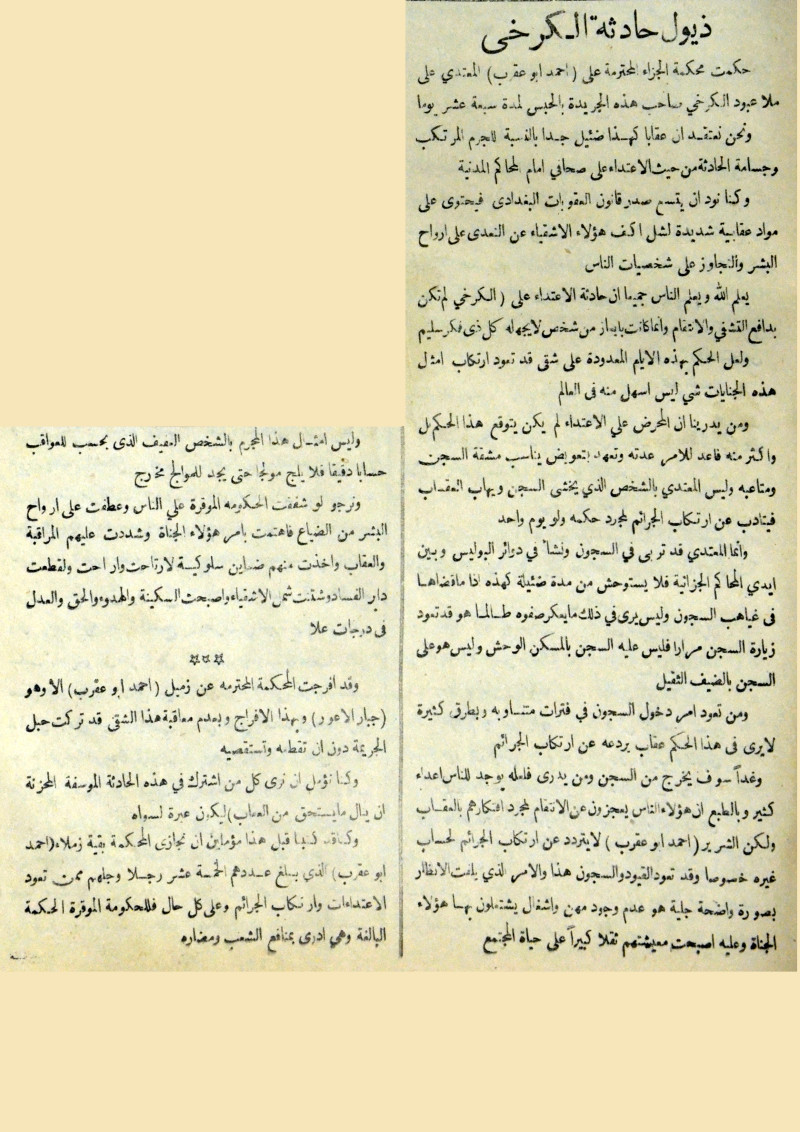 ذيول حادثة الكرخي
حكمت محكمة الجزاء المحترمة على (احمد ابو عقرب) المعتدي على
ملا عبود الكرخي صاحب هذه الجريدة بالحبس لمدة سبعة عشر يوما
ونحن نعتقد ان عقابا كهذا ضئيل جدا بالنسبة للجرم المرتكب
وجسامة الحادثة من حيث الاعتداء على صحافي امام المحاكم المدنية
وكنا نود ان يتسع صدر قانون العقوبات البغدادى فيحتوى على
مواد عقابية شديدة لشل اكف هؤلاء الاشقياء عن التعدى على ارواح
البشر والتجاوز على شخصيات الناس
يعلم الله ويعلم الناس جميعا ان حادثة الاعتداء على (الكرخي لم تكن
بدافع التشفي والانتقام وانما كانت بايعاز من شخص لايجهله كل ذى فكر سليم
ولعل الحكم بهذه الايام المعدودة على شقى قد تعود ارتكاب امثال
هذه الجنايات شي ليس اسهل منه فى العالم
ومن يدرينا ان المحرض علي الاعتداء لم يكن يتوقع هذا الحكم بل
واكثر منه فاعد للامر عدته وتعهد بتعويض يناسب مشقة السجن
ومتاعبه وليس المعتدي بالشخص الذي يخشى السجن ويهاب العقاب
فيتادب عن ارتكاب الجرائم لمجرد حكمه ولو يوم واحد
وانما المعتدي قد تربى في السجون ونشأ في دوائر البوليس وبين
ايدي المحاكم الجزائية فلا يستوحش من مدة ضئيلة كهذه اذا ماقضاها
فى غياهب السجون وليس يرى في ذلك مايعكر صفوه طالما هو قد تعود
زيارة السجن مرارا فليس عليه السجن بالمسكن الوحش وليس هو على
السجن بالضيف الثقيل
ومن تعود امر دخول السجون في فترات متناوبه وبطرق كثيرة
لايرى فى هذا الحكم عقاب يردعه عن ارتكاب الجرائم
وغداً سوف يخرج من السجن ومن يدرى فلعله يوجد للناس اعداء
كثير وبالطبع ان هؤلاء الناس يعجزون عن الانتقام لمجرد افتكارهم بالعقاب
ولكن الشرير (احمد ابو عقرب) لايتردد عن ارتكاب الجرائم لحساب
غيره خصوصا وقد تعود القيود والسجون هذا والامر الذي يلفت الانظار
بصورة واضحة جلية هو عدم وجود مهن واشغال يشتغلون بها هؤلاء
الجناة وعليه اصبحت معيشتهم ثقلا كبيراً على حياة المجتمع
وليس امثال هذا المجرم بالشخص العفيف الذى يحسب للعواقب
حسابا دقيقا فلا يلج مولجا حتى يجد للموالج مخارج
ونرجو لو شفقت الحكومه الموقرة علي الناس وعطفت على ارواح
البشر من الضياع فاهتمت بامر هؤلاء الجناة وشددت عليهم المراقبة
والعقاب واخذت منهم ضماين سلوكية لارتاحت واراحت ولقطعت
دابر الفساد وشتتت شمل الاشقياء واصبحت السكينة والهدوء والحق والعدل
فى درجات علا
***
وقد افرجت المحكمة المحترمه عن زميل (احمد ابو عقرب) الا وهو
(جبار الاعور) وبهذا الافراج وبعدم معاقبة هذا الشقى قد تركت حبل
الجريمة دون ان تقطعه وتستقصيه
وكنا نؤمل ان نرى كل من اشترك في هذه الحادثة الموسفة المحزنة
ان ينال مايستحق من العقاب ليكون عبرة لسواه
وكنا قبل هذا مؤملين ان تجازى المحكمة بقية زملاء (احمد
ابو عقرب) الذي يبلغ عددهم الخمسة عشر رجلا وجلهم ممن تعود
الاعتداءات وارتكاب الجرائم وعلى كل حال فللحكومة الموقرة الحكمة
البالغة وهي ادرى بمنافع الشعب ومضاره